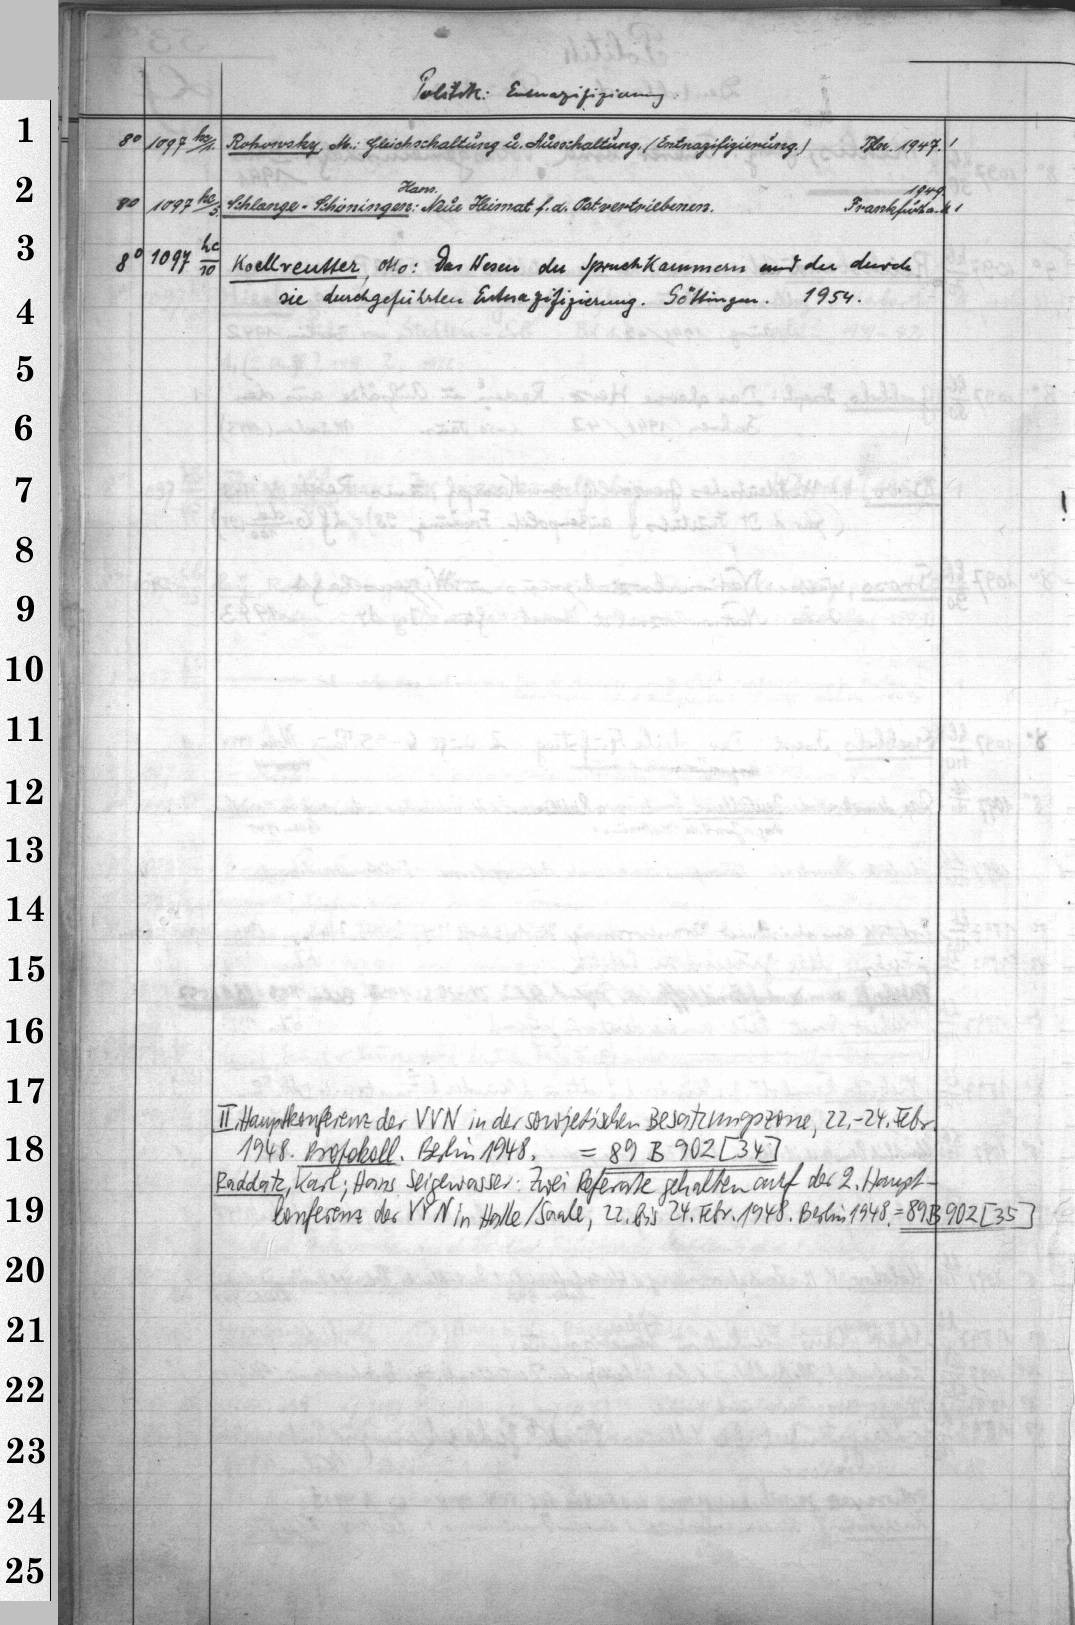 Politik: Entnazifizierung
1
8° 1097 hc/1. Rohowsky, M.: Gleichschaltung u. Ausschaltung. (Entnazifizierung.) 1947. !
2
Hans. 1949
8° 1097 hc/5 Schlange-Schöningen: Neue Heimat f. d. Ostvertriebenen. Frankfurt a. M !
3
8° 1097 hc/10 Koellreutter, Otto: Das Wesen der Spruchkammern und der durch
4
sie durchgeführten Entnazifizierung. Göttingen. 1954.
5
6
7
8
9
10
11
12
13
14
15
16
17
II. Hauptkonferenz der VVN in der sowjetischen Besatzungszone, 22.-24. Febr.
18
1948. Protokoll. Berlin 1948. = 89 B 902 [34]
Raddatz, Karl; Hans Seigewasser: Zwei Referate gehalten auf der 2. Haupt-
19
konferenz der VVN in Halle/Saale, 22. bis 24. Febr. 1948. Berlin 1948. = 89 B 902 [35]
20
21
22
23
24
25